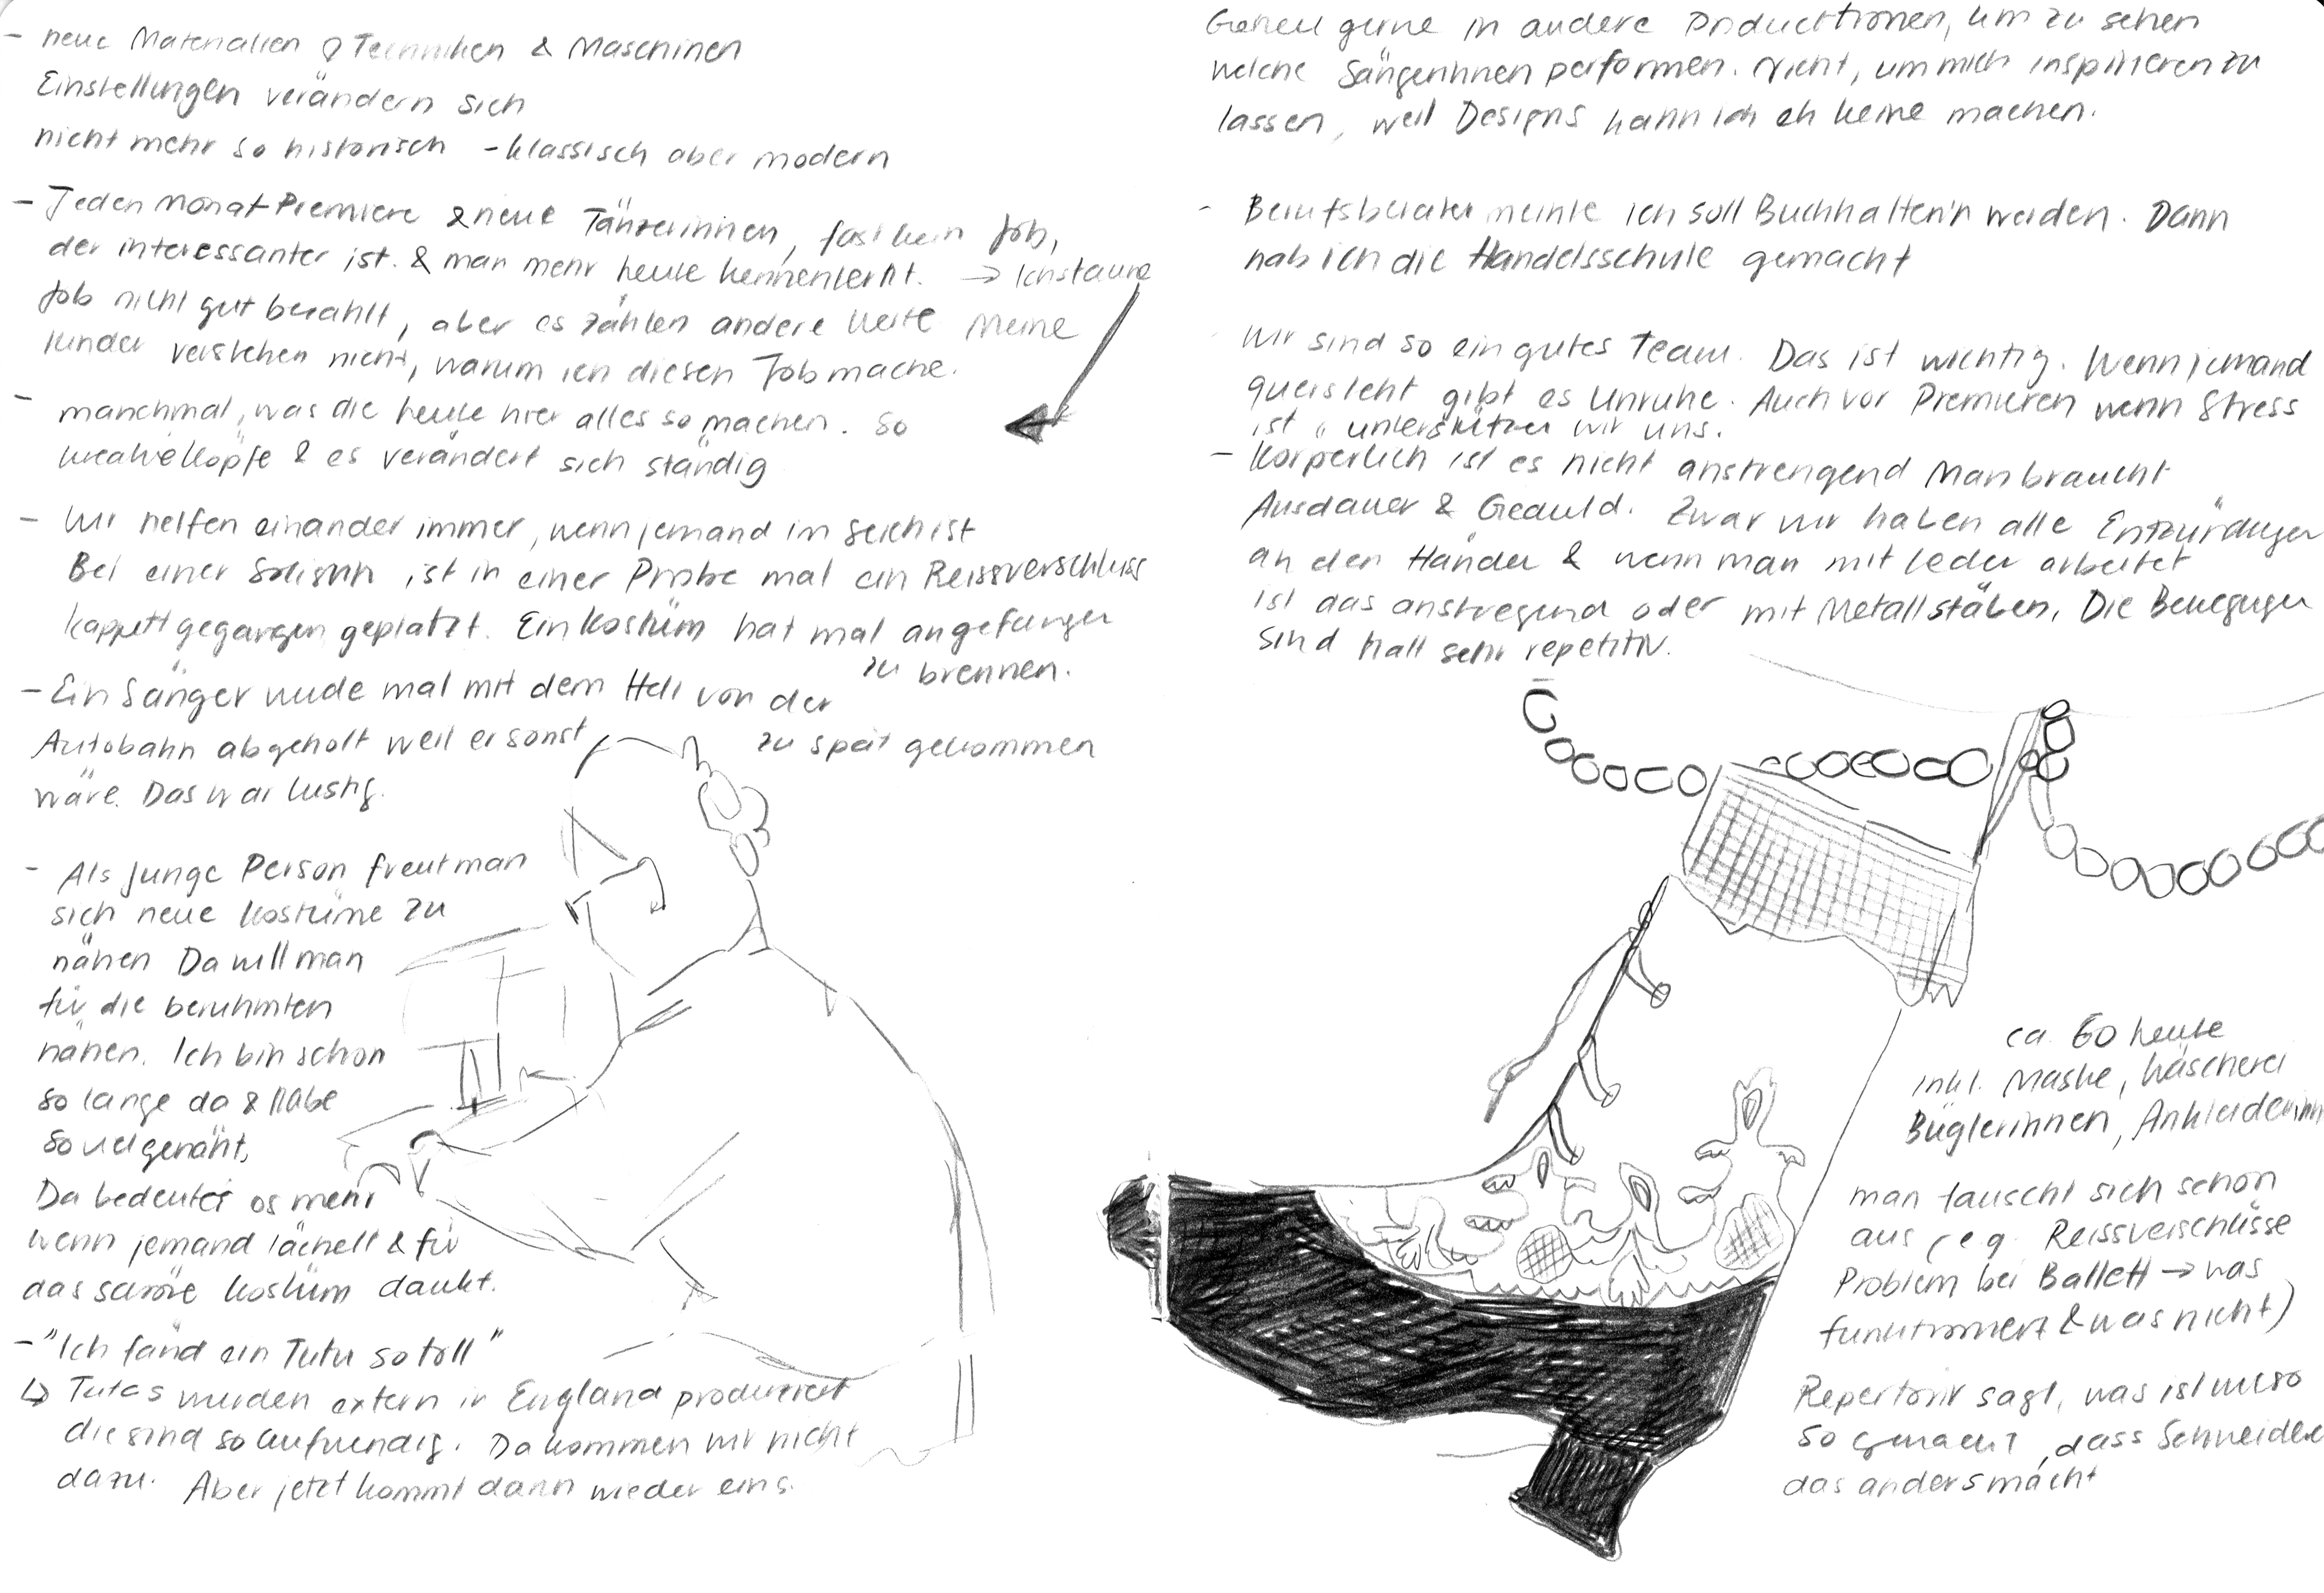 - neue Materialien & Techniken & Maschinen
Einstellungen verändern sich
nicht mehr so historisch - klassisch aber modern
- Jeden Monat Premiere & neue Tänzerinnen, fast kein Job,
der interessanter ist. & man mehr heute kennenlernt. → Ich staune
Job nicht gut bezahlt, aber es zählen andere Werte Meine
Kinder verstehen nicht, warum ich diesen Job mache.
- manchmal, was die heute hier alles so machen. So
kreative Köpfe & es verändert sich ständig
- Wir helfen einander immer, wenn jemand im Seich ist
Bei einer Solistin ist in einer Probe mal ein Reissverschluss
kappett gegangen geplatzt. Ein Kostüm hat mal angefangen
zu brennen.
- Ein Sänger wude mal mit dem Heli von der
Autobahn abgeholt weil er sonst zu spät gekommen
wäre. Das war lustig.
- Als junge Person freut man
sich neue Kostüme zu
nähen Da will man
für die berühmten
nähen. Ich bin schon
so lange da & habe
so viel genäht,
Da bedeutet es mehr
wenn jemand lächelt & für
das schöne Kostüm dankt.
- "Ich fänd ein Tutu so toll"
↳ Tutus wurden extern in England produziert
die sind so aufwendig. Da kommen wir nicht
dazu. Aber jetzt kommt dann wieder eins.
Gehen gerne in andere Productionen, um zu sehen
welche Sängerinnen performen. Nicht, um mich inspirieren zu
lassen, weil Designs kann ich eh keine machen.
- Berufsberater meinte ich soll Buchhalterin werden. Dann
hab ich die Handelsschule gemacht
- Wir sind so ein gutes Team. Das ist wichtig. Wenn jemand
quersteht gibt es Unruhe. Auch vor Premieren wenn Stress
ist, unterstützen wir uns.
- Körperlich ist es nicht anstrengend Man braucht
Ausdauer & Geduld. Zwar wir haben alle Entzündungen
an den Händen & wenn man mit Leder arbeitet
ist das anstregend oder mit Metallstäben. Die Bewegugen
sind halt sehr repetitiv.
ca. 60 heute
inkl. Maske, Wäscherei
Büglerinnen, Ankleiderinnen
man tauscht sich schon
aus (e.g. Reissverschlüsse
Problem bei Ballett → was
funktioniert & was nicht)
Repertoire sagt, was ist wieso
so gemacht, dass Schneider
das anders macht